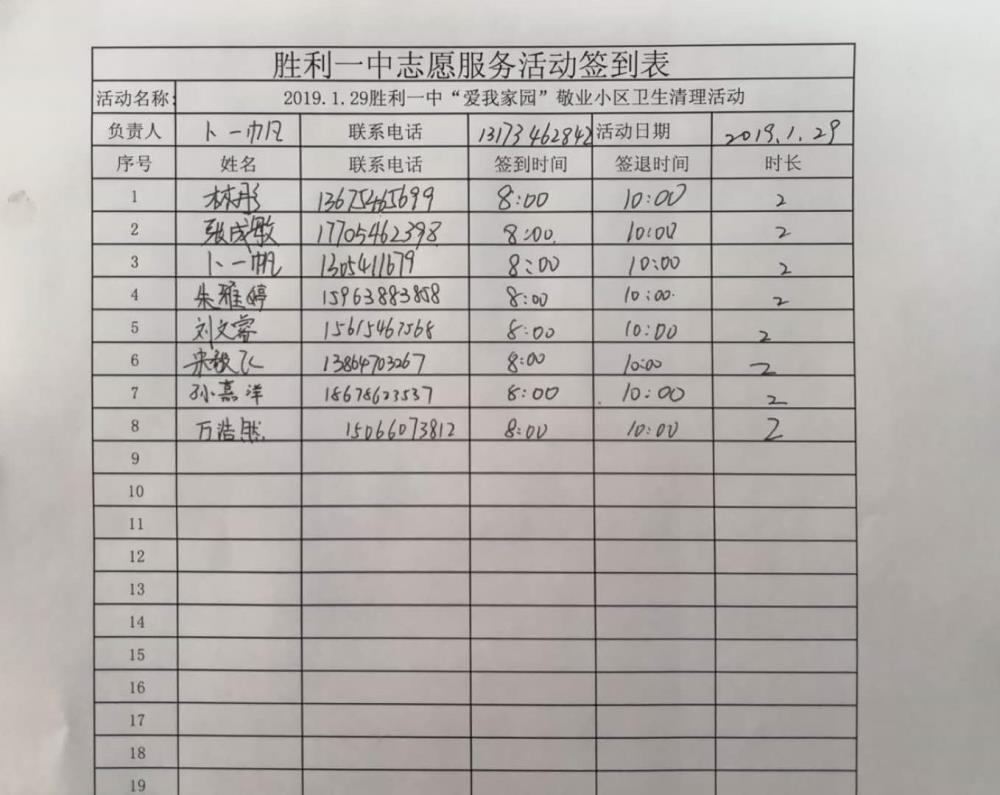 胜利一中志愿服务活动签到表
活动名称: 2019.1.29胜利一中“爱我家园”敬业小区卫生清理活动
负责人 卜一帆 联系电话 13173462842 活动日期 2019.1.29
序号 姓名 联系电话 签到时间 签退时间 时长
1 林彤 13675465699 8:00 10:00 2
2 张成敏 17705462398 8:00 10:00 2
3 卜一帆 1305411679 8:00 10:00 2
4 朱雅婷 15963883858 8:00 10:00 2
5 刘文睿 15615467568 8:00 10:00 2
6 宋毅飞 13864703267 8:00 10:00 2
7 孙嘉洋 18678623537 8:00 10:00 2
8 万浩然 15066073812 8:00 10:00 2
9
10
11
12
13
14
15
16
17
18
19